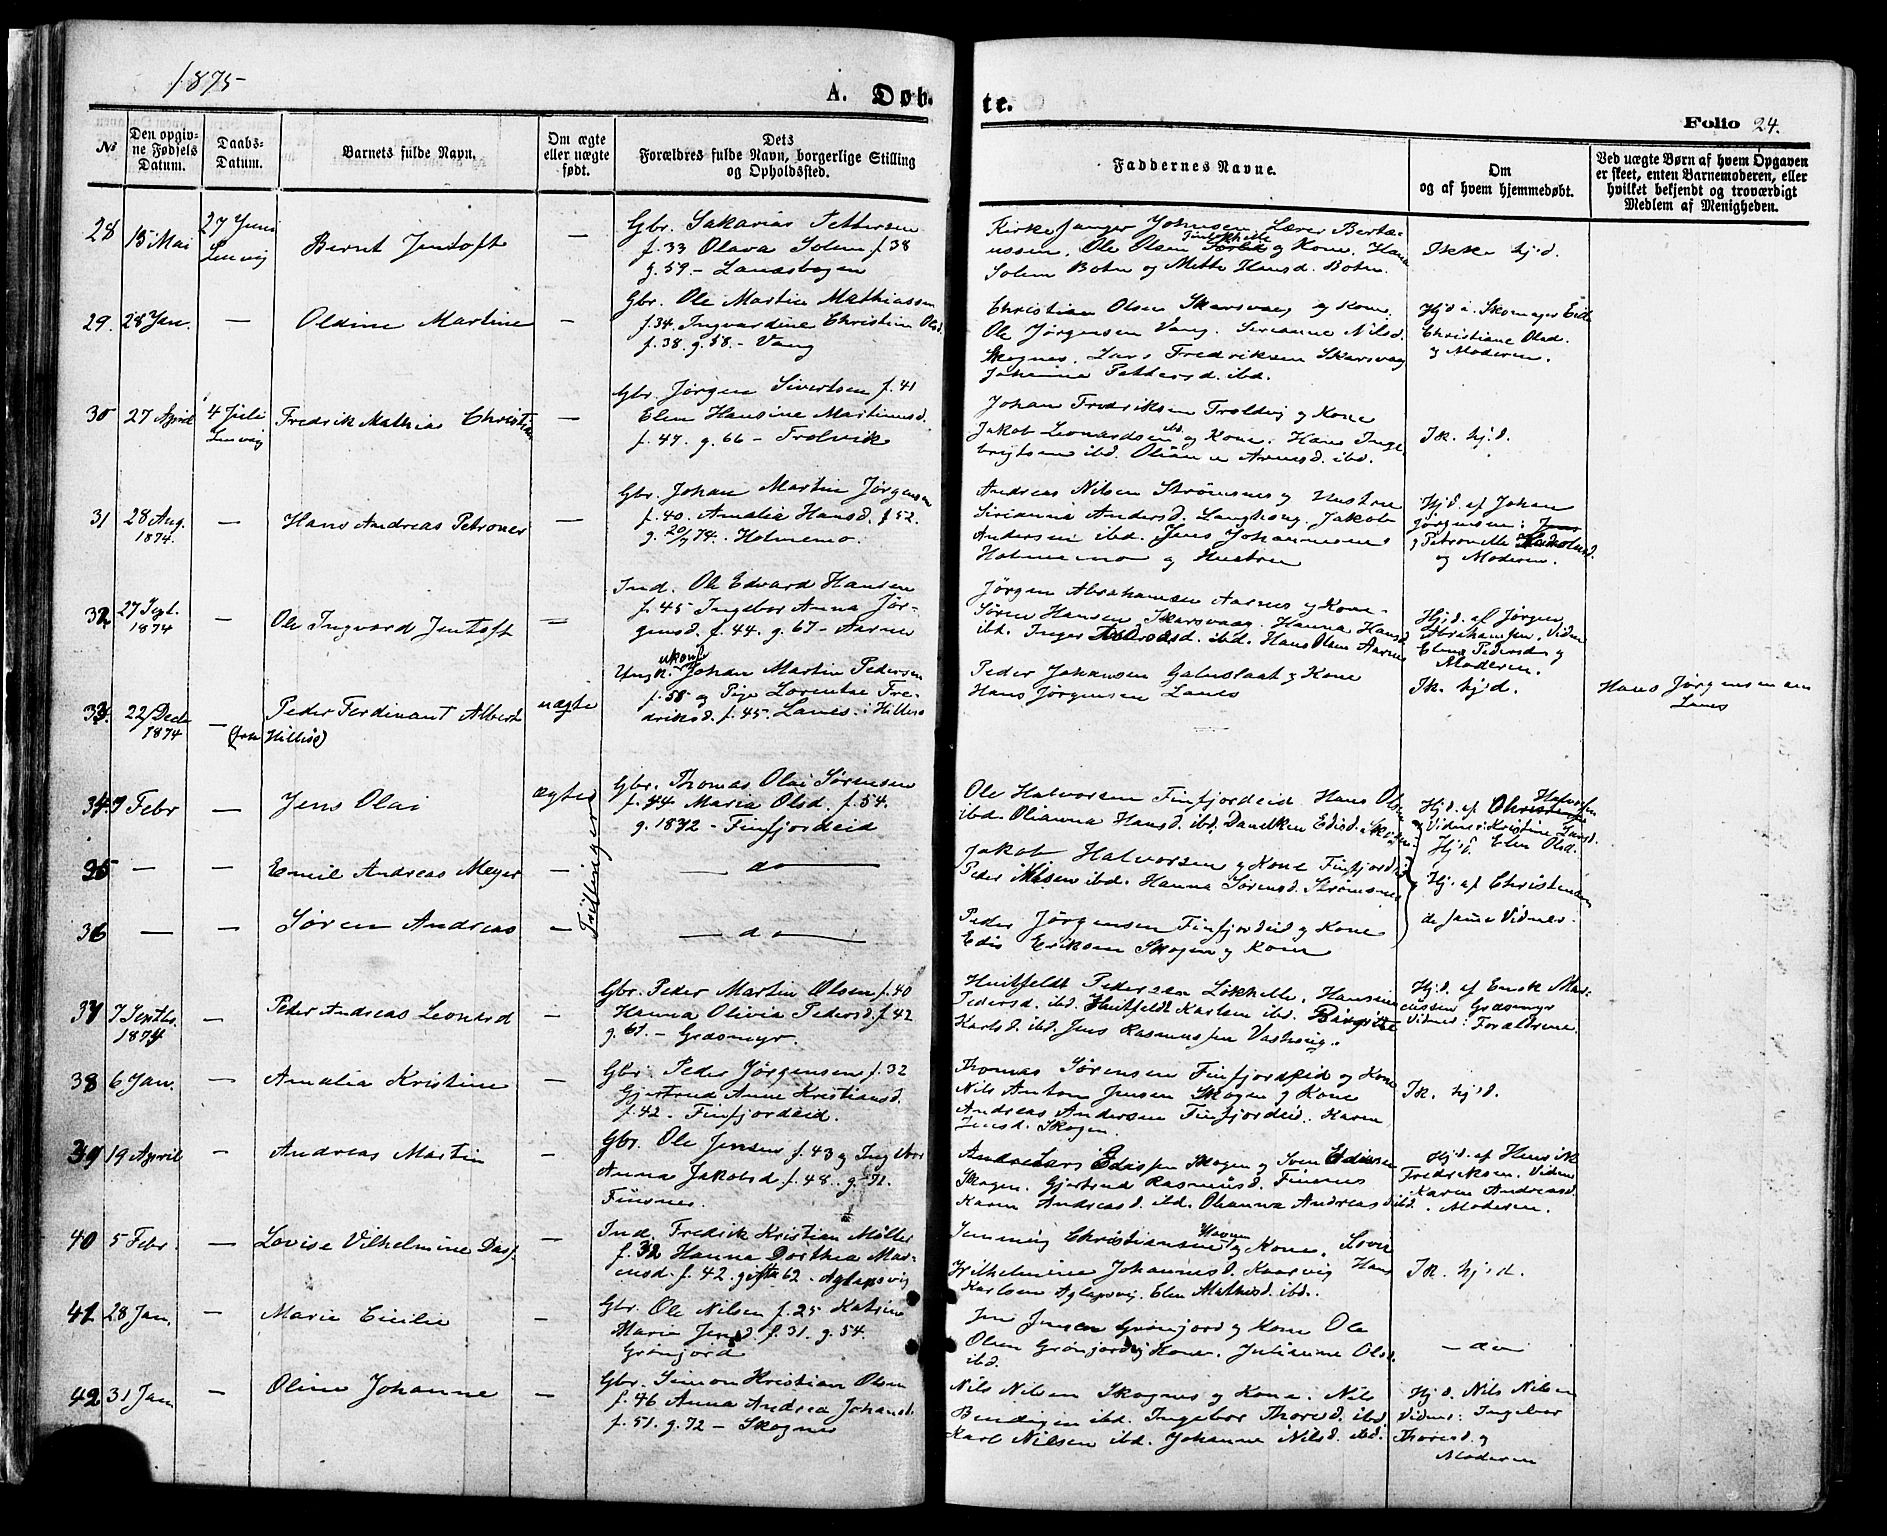 1875
A. Døb-
te.
Folio 24.
No
Den opgiv-
ne Fødsels
Datum.
Daabs-
Datum.
Barnets fulde Navn.
Om ægte
eller uægte
født.
Dets
Forældres fulde Navn, borgerlige Stilling
og Opholdsted.
Faddernes Navne.
Om
og af hvem hjemmedøbt.
Ved uægte Børn af hvem Opgaven
er skeet, enten Barnemoderen, eller
hvilket bekjendt og troværdigt
Medlem af Menigheden.
28 15 Mai
27 Juni
Lenvig
Bernt Jentoft
Gbr. Sakarias Pettersen
f. 33 Olava Solem f. 38
g. 59 - Lanesbogen
Kirkesanger Johnsen Lærer Berte-
ussen, Ole Olsen og Kone, Hans
Solem Boten og Mette Hansd. Boten.
Ikke hjd.
29. 28 Jan. —
Oldine Martine
—
Gbr. Ole Martin Mathiassen
f. 34. Ingvardine Christine Olsd.
f. 38. g. 58. - Vang
Christian Olsen Skarsvaag og Kone.
Ole Jørgensen Vang. Sirianne Nilsd.
Skognes. Lars Fredriksen Skarsvaag
Johanna Pettersd. ibd.
Hjd. Skomager
Christiane Olsd.
og Moderen.
30 27 April
4 Juli
Lenvig
Fredrik Mathias Christian
—
Gbr. Jørgen Sivertsen f. 41
Elen Hansine Martinusd.
f. 47. g. 66 - Trolvik
Johan Fredriksen Troldvig og Kone
Jakob Leonardsen ibd. og Kone. Hans Inge-
brigtsen ibd. Arnesd. ibd.
Ik. hjd.
31 28 Aug.
1874.
—
Hans Andreas Petroner
—
Gbr. Johan Martin Jørgensen
f. 40. Amalia Hansd. f 52.
g. 20/9 74. Holmemo.
Andreas Nilsen Strømsnes og Hustru
Sirianna Andersd. Jakob
Andersen ibd. Jens Johannesen
Holmemo og Hustru
Hjd. af Johan
Jørgensen:
g Petronelle
og Moderen.
32 27 Sept.
1874
—
Ole Ingvard Jentoft
—
Ind. Ole Edvard Hansen
f. 45 Ingebor Anna Jør-
gensd. f. 44. g. 67 - Aarnes
Jørgen Abrahamsen Aarnes og Kone.
Søren Hansen Skarsvaag. Hanna Hansd
ibd. Inger ibd. Hans Olsen Aarnes
Hjd. af Jørgen
Abrahamsen, Vidne
Elen Pedersd. og
Moderen.
33. 22 Decbr
1874
—
(fra Hillesø)
Peder Ferdinant Albert
uægte
Ungk. ukonf. Johan Martin Pedersen
f. 58 og Pige Lorentse Fre-
driksd. f. 45. Lanes. i Hillesø
Peder Johansen og Kone
Hans Jørgensen Lanes
Ik. hjd.
Hans Jørgensen
Lanes
34. 7 Febr —
Jens Olai
ægte
Trillinger
Gbr. Thomas Olai Sørensen
f. 44 Maria Olsd. f. 54.
g. 1872 - Finfjordeid
Ole Halvorsen Finfjordeid. Hans Olsen
ibd. Olianna Hansd. ibd. Edisd. Skogen.
Hjd. af Halvorsen
Vidner: Kristine Larsd.
Hjd. Elen Olsd.
35 — —
Emil Andreas Meyer
—
— do —
Jakob Halvorsen og Kone Finfjordeid
Peder Nilsen ibd. Hanna Sørensd. Strømsnes
Hj. af
36 — —
Søren Andreas
—
— do —
Peder Jørgensen Finfjordeid og Kone
Edis Eriksen Skogen og Kone
de samme Vidner.
37 7 Septbr.
1874
—
Peder Andreas Leonard
—
Gbr. Peder Martin Olsen f. 40
Hanna Olivia Pedersd. f. 42
g. 67. - Græsmyr.
Huitfeldt Pedersen Løkhelle. Hansine
Pedersd. ibd. Huitfeldt Karlsen ibd.
Karlsd. ibd. Jens Rasmussen
Hjd. af Mar-
cussen Græsmyr
Vidner: Forældrene
38 6 Jan. —
Amalia Kristine
—
Gbr. Peder Jørgensen f. 32
Gjertrud Anne Kristiansd.
f. 42. - Finfjordeid.
Thomas Sørensen Finfjordeid og Kone
Nils Anton Jensen Skogen og Kone
Andreas Andersen Finfjordeid. Karen
Jensd. Skogen.
Ik. hjd.
39 19 April —
Andreas Martin
—
Gbr. Ole Jensen f. 43 og Ingebor
Anna Jakobsd f. 48. g. 72.
Finsnes.
Lars Edissen Skogen og Sven
Skogen. Gjertrud Rasmusd. Finsnes
Karen Andreasd ibd. Olianna Andreasd ibd.
Hjd. af Henrik
Fredriksen. Vidne
Karen Andreasd.
. Moderen.
40 5 Febr. —
Lovise Vilhelmine
Ind. Fredrik Kristian Møller
f. 32 Hanna Dorthea Mar-
f. 42. gifta 62. Aglapsvig
Jenmig Christiansen og Kone.
Wilhelmine Johannesd. Kaarvig Hans
Karlsen Aglapsvig. Elen Mathisd. ibd.
Ik. hjd.
41 28 Jan. —
Marie Cicilie
—
Gbr. Ole Nilsen f. 25 Katrine
Marie Jensd. f. 31. g. 54.
Grønjord
Jens Jensen Grønjord og Kone Ole
Olsen Grønjord og Kone. Olsd.
ibd.
— do
42 31 Jan —
Oline Johanne
—
Gbr. Simon Kristian Olsen
f. 46 Anna Andrea Johansd.
f. 51. g. 72 - Skognes
Nils Nilsen Skognes og Kone. Nils
ibd. Ingebor Thoresd. ibd.
Karl Nilsen ibd. Johanne Nilsd. ibd.
Hjd. Nils Nilsen
Vidner: Ingebor
Thoresd. og
Moderen